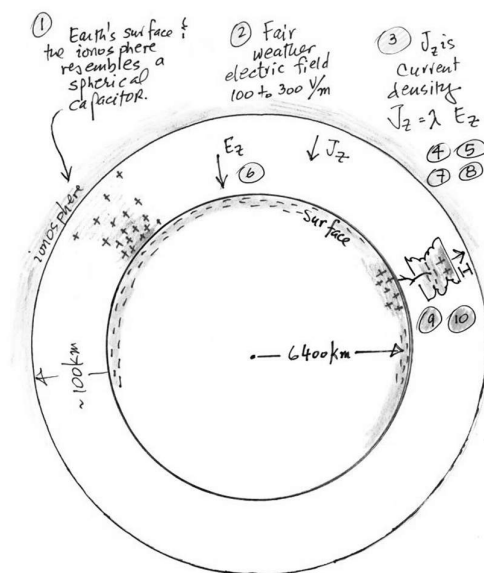 ① Earth's surface &
the ionosphere
resembles a
spherical
capacitor.
② Fair
weather
electric field
100 to 300 V/m
③ Jz is
current
density
Jz = λ Ez
④ ⑤
⑦ ⑧
Ez
⑥
Jz
ionosphere
Surface
I
⑨ ⑩
6400km
~100km